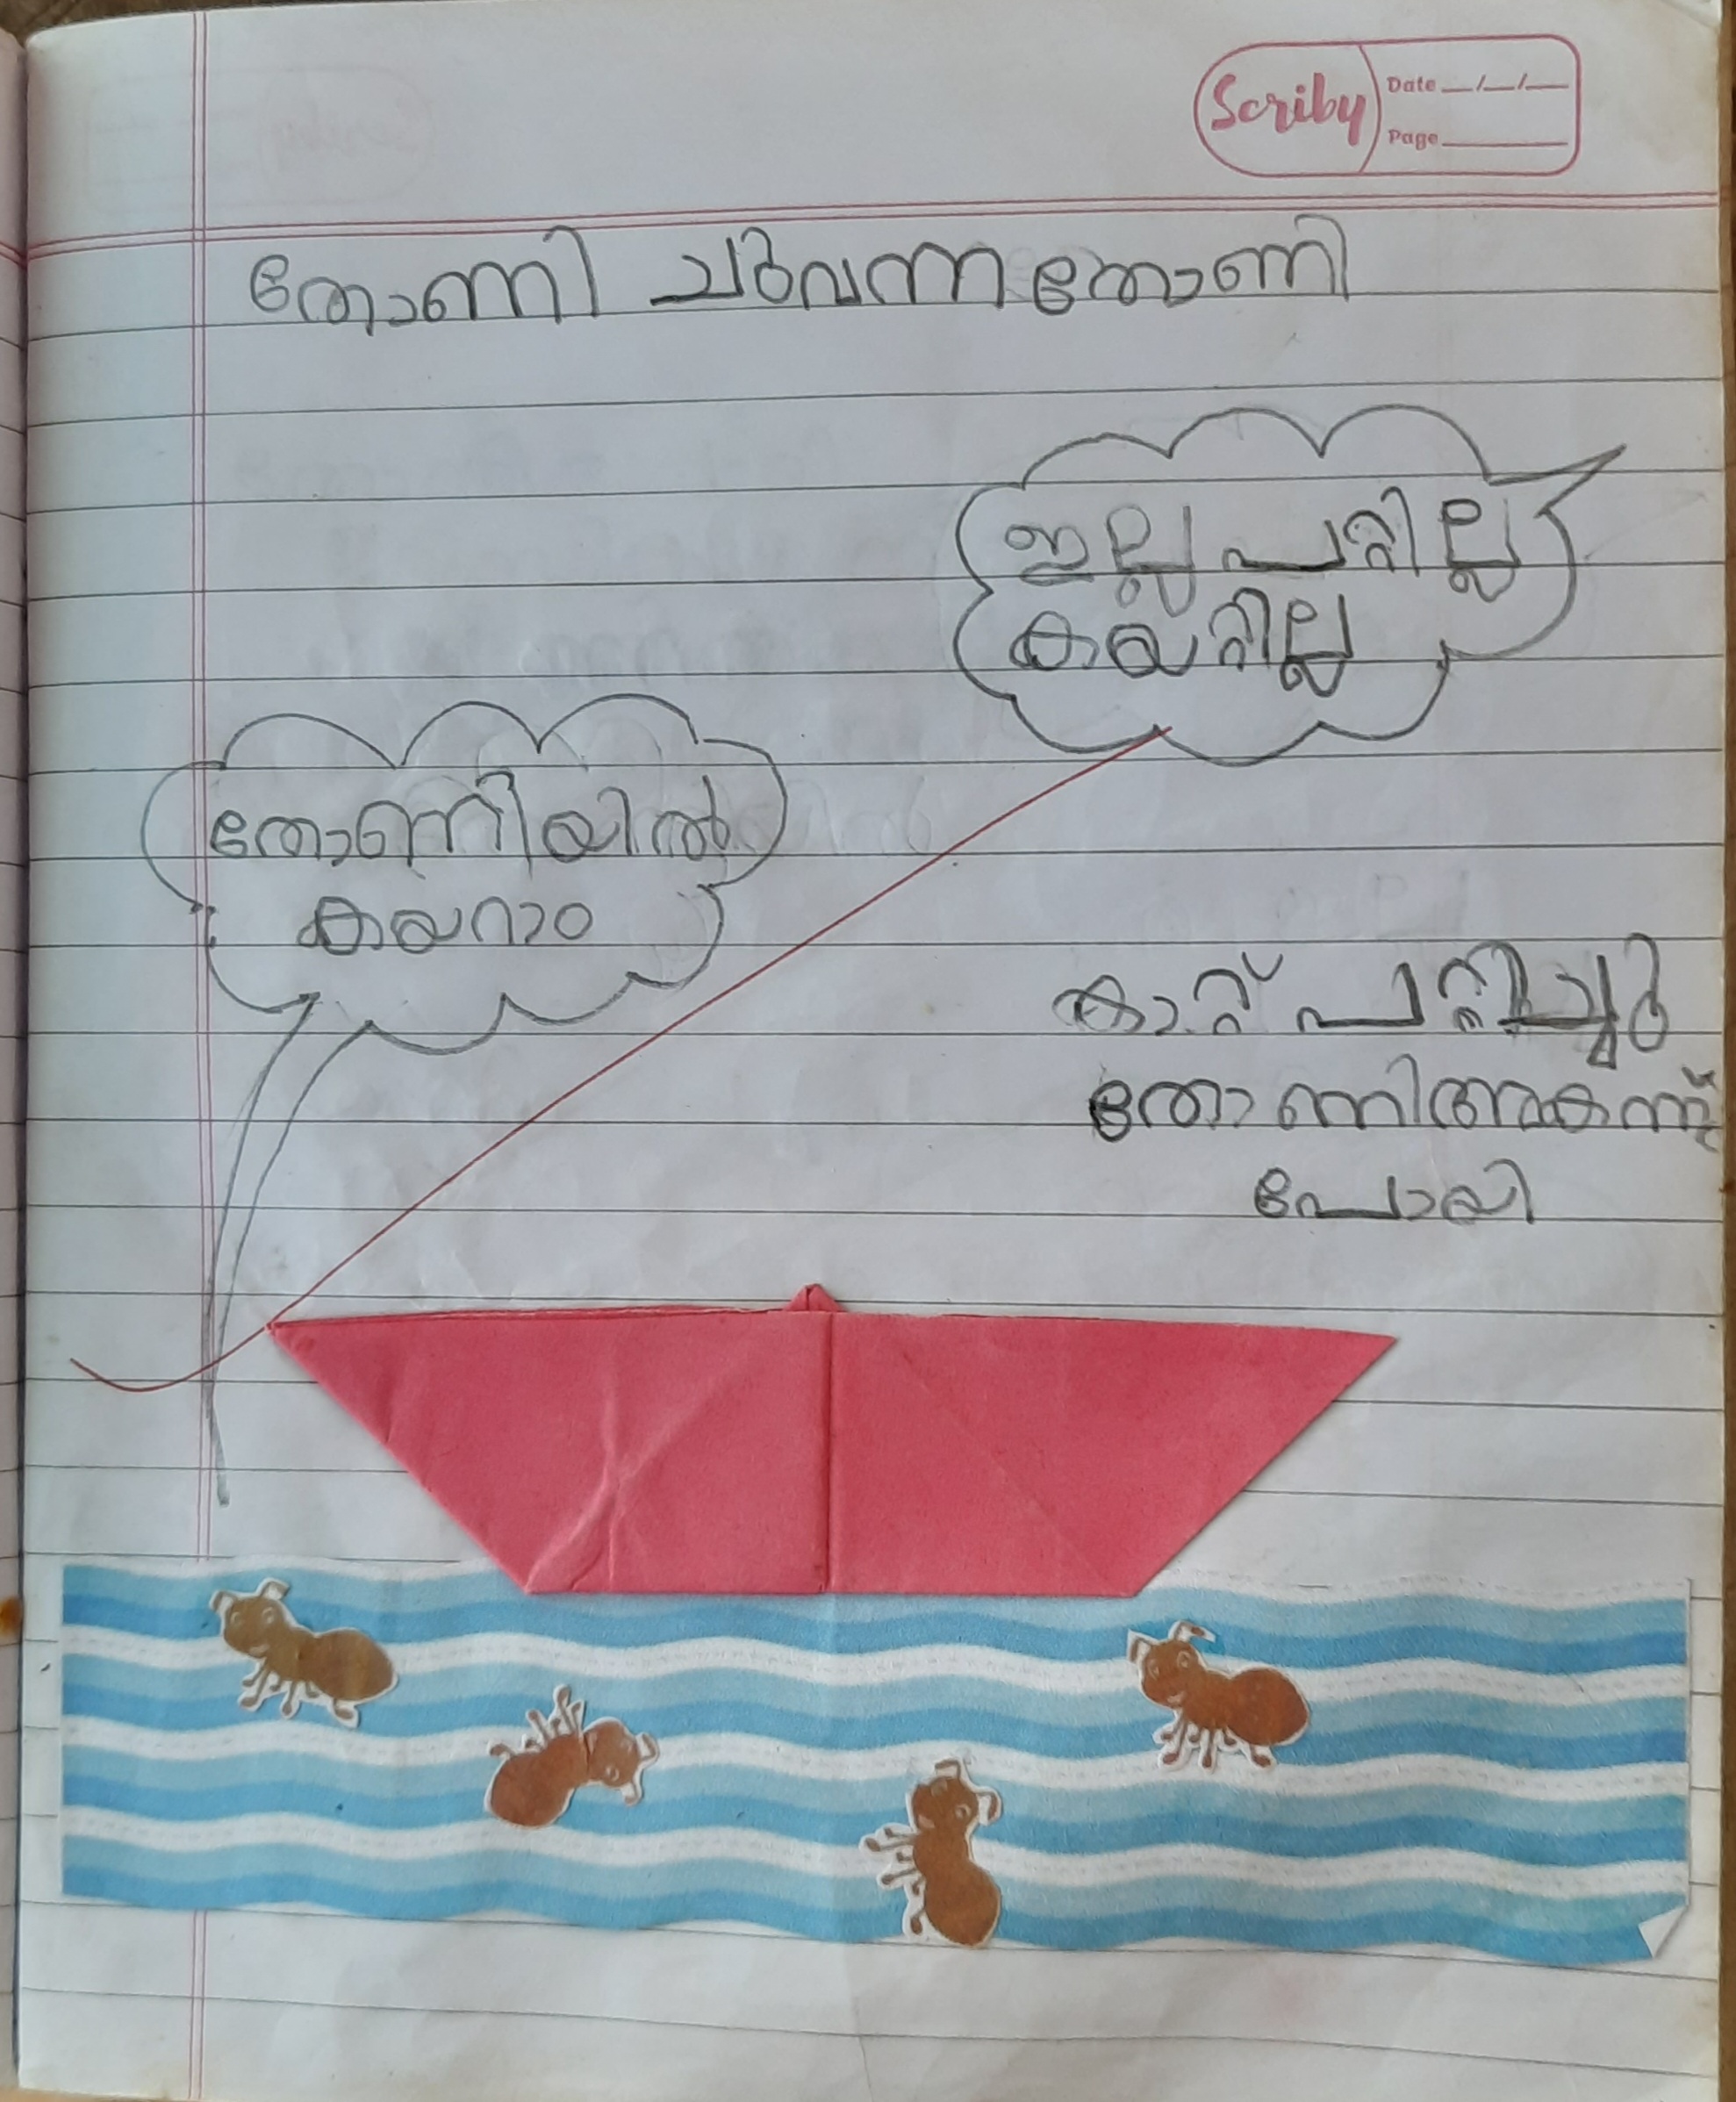 Scriby
Date __/__/__
Page ______
തോണി ചുവന്ന തോണി
ഇല്ല പറ്റില്ല
കയറ്റില്ല
തോണിയിൽ
കയറാം
കാറ്റ് പറ്റിച്ചു
തോണി അകന്ന്
പോയി